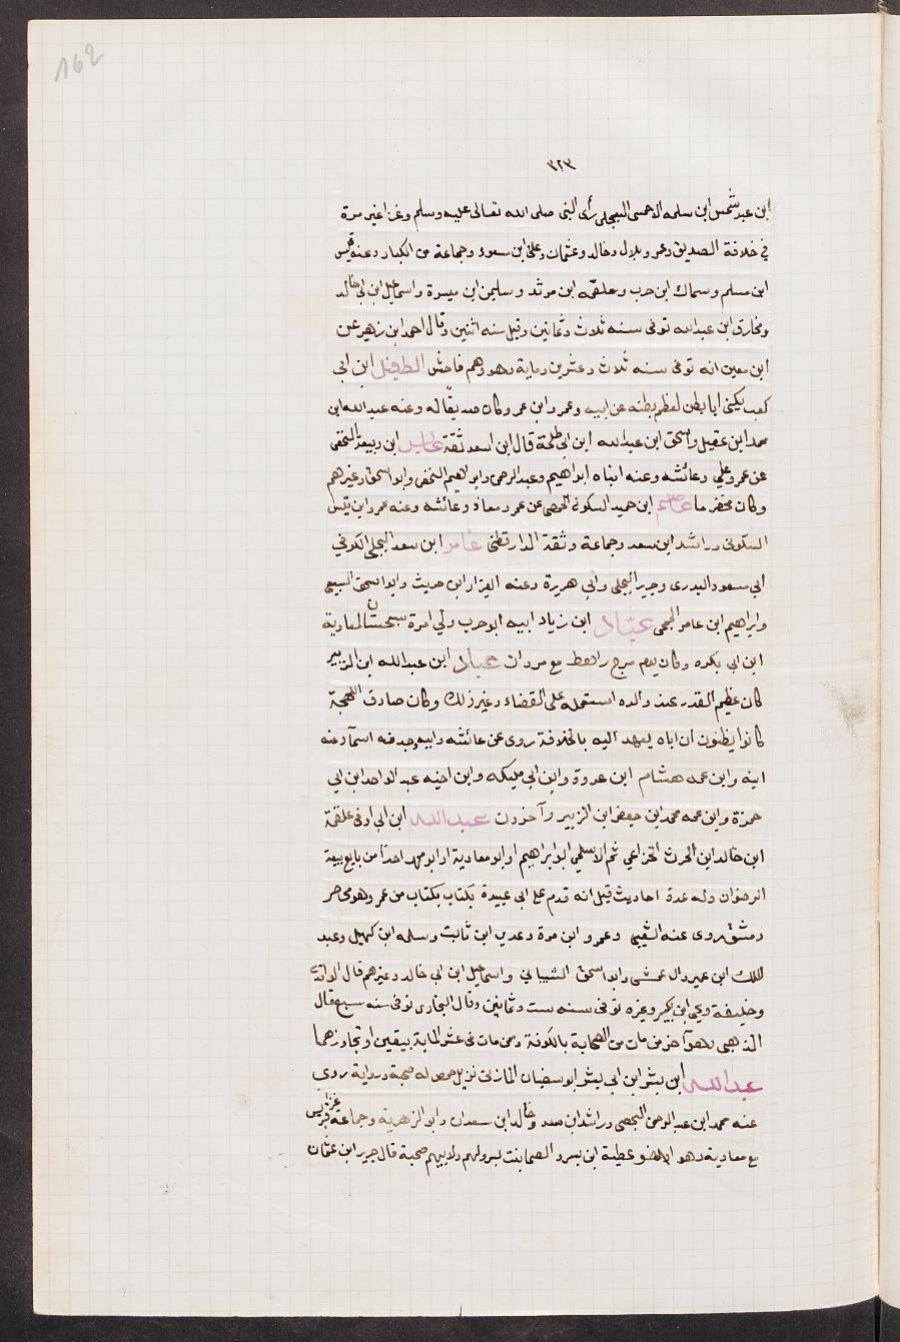 162
٣٢٣
ابن عبد شمس ابن سلمه الاحمسى البجلى رأى النبى صلى الله تعالى عليه وسلم وغزا غير مرة
فى خلافة الصديق وعمر وبلال وخالد وعثمان وعلى ابن مسعود وجماعة من الكبار وعنه قيس
ابن مسلم وسماك ابن حرب وعلقمه ابن مرثد وسليمن ابن ميسرة واسماعيل ابن ابى خالد
ومخارق ابن عبد الله توفى سنه ثلاث وثمانين وقيل سنه اثنين وقال احمد ابن زهير عن
ابن معين انه توفى سنه ثلاث وعشرين وماية وهو وهم فاحش الطفيل ابن ابى
كعب يكنى ابا بطن لعظم بطنه عن ابيه وعمر وابن عمر وكان صديقا له وعنه عبد الله ابن
محمد ابن عقيل واسحق ابن عبد الله ابن ابى طلحة قال ابن اسعد ثقة عابس ابن ربيعة النخعى
عن عمر وعلي وعائشه وعنه ابناه ابراهيم وعبد الرحمن وابراهيم النخعى وابو اسحق وغيرهم
وكان مخضرما عاصم ابن حميد السكونى الحمصى عن عمر ومعاذ وعائشه وعنه عمرو ابن قيس
السكونى وراشد ابن سعد وجماعة وثقة الدارقطنى عامر ابن سعد البجلى الكوفي
ابى مسعود البدرى وجرير البجلى وابي هريرة وعنه العيزار ابن حريث وابو اسحق السبيعى
وابراهيم ابن عامر الجمحى عبّاد ابن زياد ابيه ابو حرب ولي امرة سجستان لمعاوية
ابن ابى بكره وكان يوم مرج راهط مع مروان عباد ابن عبد الله ابن الزبير
كان عظيم القدر عند والده استعمله على القضاء وغير ذلك وكان صادق اللهجة
كانوا يظنون ان اباه يعهد اليه بالخلافة روى عن عائشه وابيه وجدته اسمآ وعنه
ابنه وابن عمه هشام ابن عروة وابن ابى مليكه وابن اخيه عبد الواحد ابن ابى
حمزة وابن عمه محمد ابن جعفر ابن الزبير وآخرون عبد الله ابن ابى اوفى علقمة
ابن خالد ابن الحرث الخزاعي ثم الاسلمي ابو ابراهيم او ابو معاوية او ابو محمد احد من بايع بيعة
الرضوان وله عدة احاديث قيل انه قدم على ابى عبيدة بكتاب بكتاب من عمر وهو محاصر
دمشق روى عنه الشعبى وعمرو ابن مرة وعدى ابن ثابت وسلمه ابن كهيل وعبد
الملك ابن عمير والاعمش وابو اسحق الشيباني واسماعيل ابن ابى خالد وغيرهم قال الواقدى
وخليفة ويحيى ابن بكير وغيره توفى سنه ست وثمانين وقال البخارى توفى سنه سبع قال
الذهبى وهو آخر من مات من الصحابة بالكوفة وممن مات فى عشر الماية بيقين او تجاوزهما
عبد الله ابن بشر ابن ابى بشر ابو سفيان المازنى نزيل حمص له صحبة ورواية روى
عنه محمد ابن عبد الرحمن اليحصبى وراشد ابن سعد وخالد ابن سعدان وابو الزهرية وجماعة غزا قبرس
مع معاوية وهو اخو عطية ابن بسر والصما بنت بسر ولهم ولابيهم صحبة قال جرير ابن عثمان